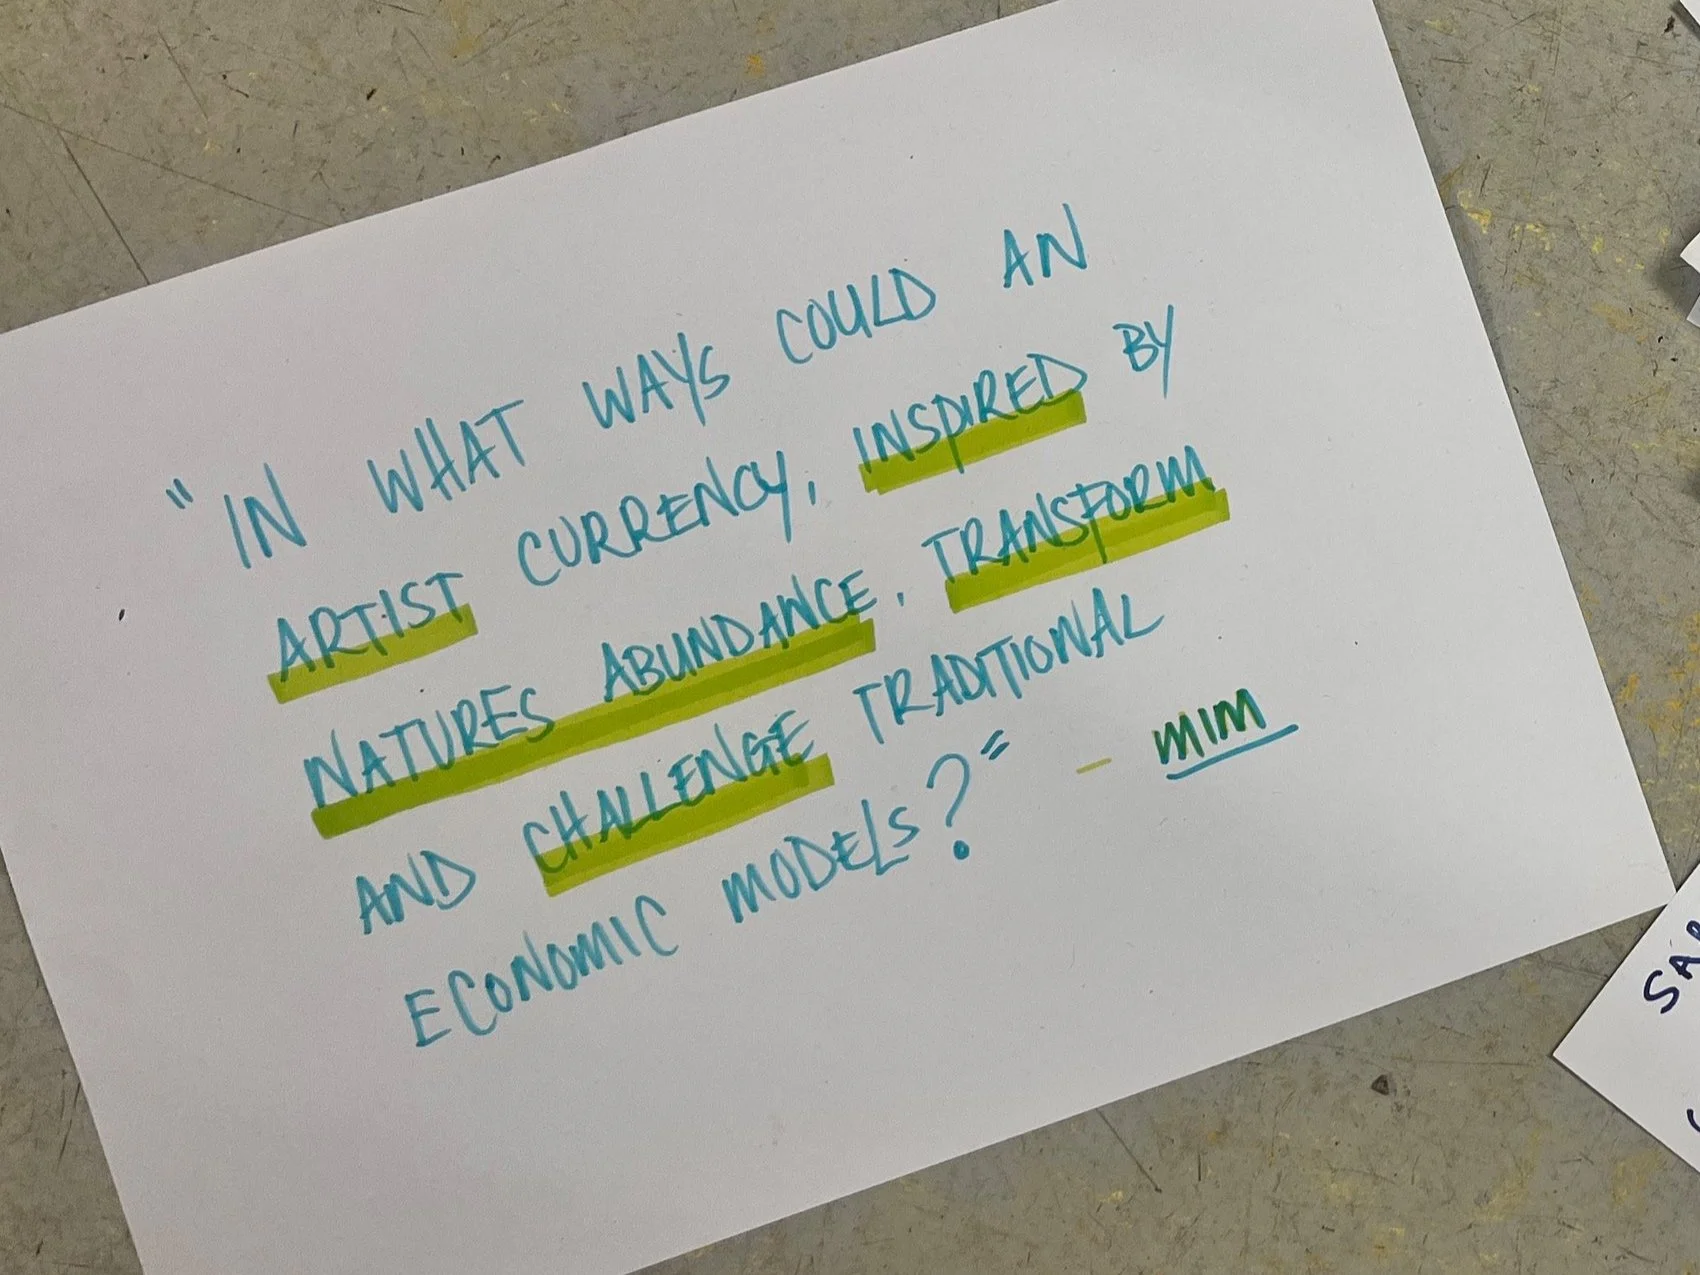 "IN WHAT WAYS COULD AN
ARTIST CURRENCY, INSPIRED BY
NATURES ABUNDANCE, TRANSFORM
AND CHALLENGE TRADITIONAL
ECONOMIC MODELS?" - MIM